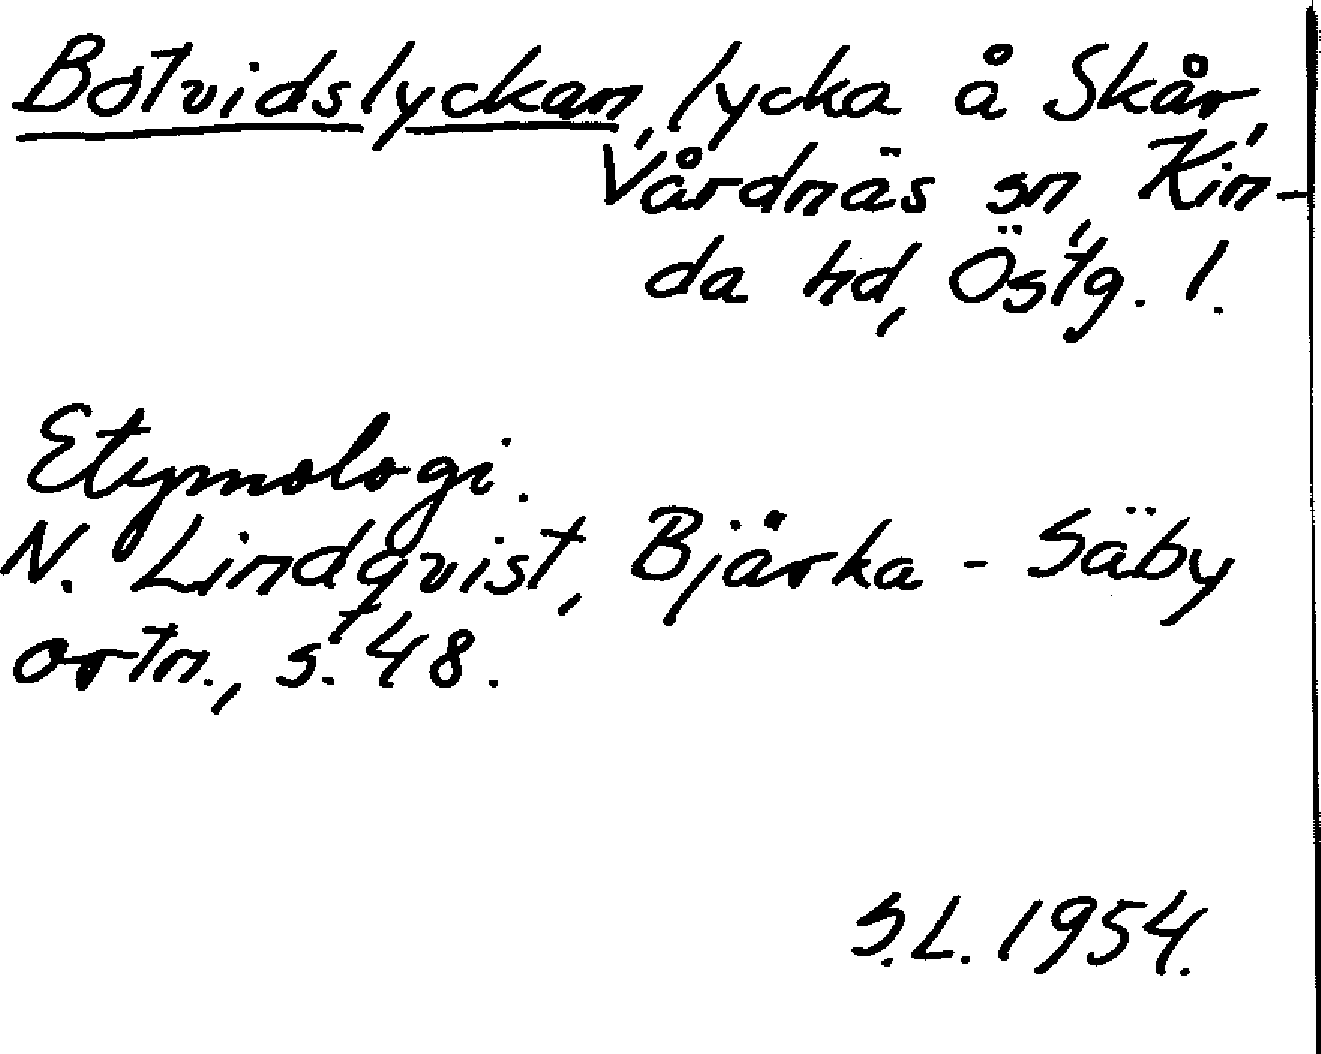 Botvidslyckan, lycka å Skår,
Vårdnäs sn, Kin-
da hd, Östg. l.
Etymologi.
N. Lindqvist, Bjärka-Säby
ortn., s. 48.
S.L. 1954.